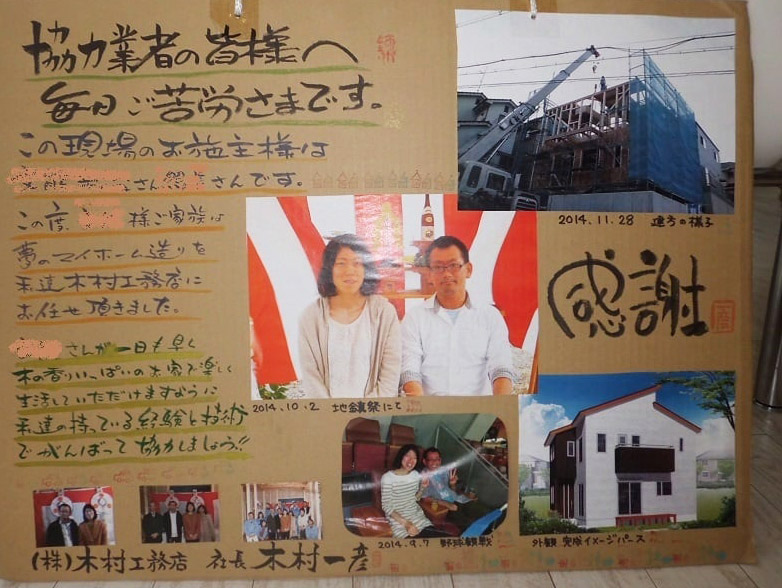 協力業者の皆様へ
毎日ご苦労さまです。
この現場のお施主様は
さん さんです。
この度、 様ご家族は
夢のマイホーム造りを
木村工務店に
お任せ頂きました。
さんが一日も早く
木の香りいっぱいのお家で楽しく
生活していただけますように
私達の持っている経験と技術
でがんばって協力しましょう!!
2014.11.28 建方の様子
感謝
2014.10.2 地鎮祭にて
2014.9.7 野球観戦
外観 完成イメージパース
(株)木村工務店 社長 木村一彦